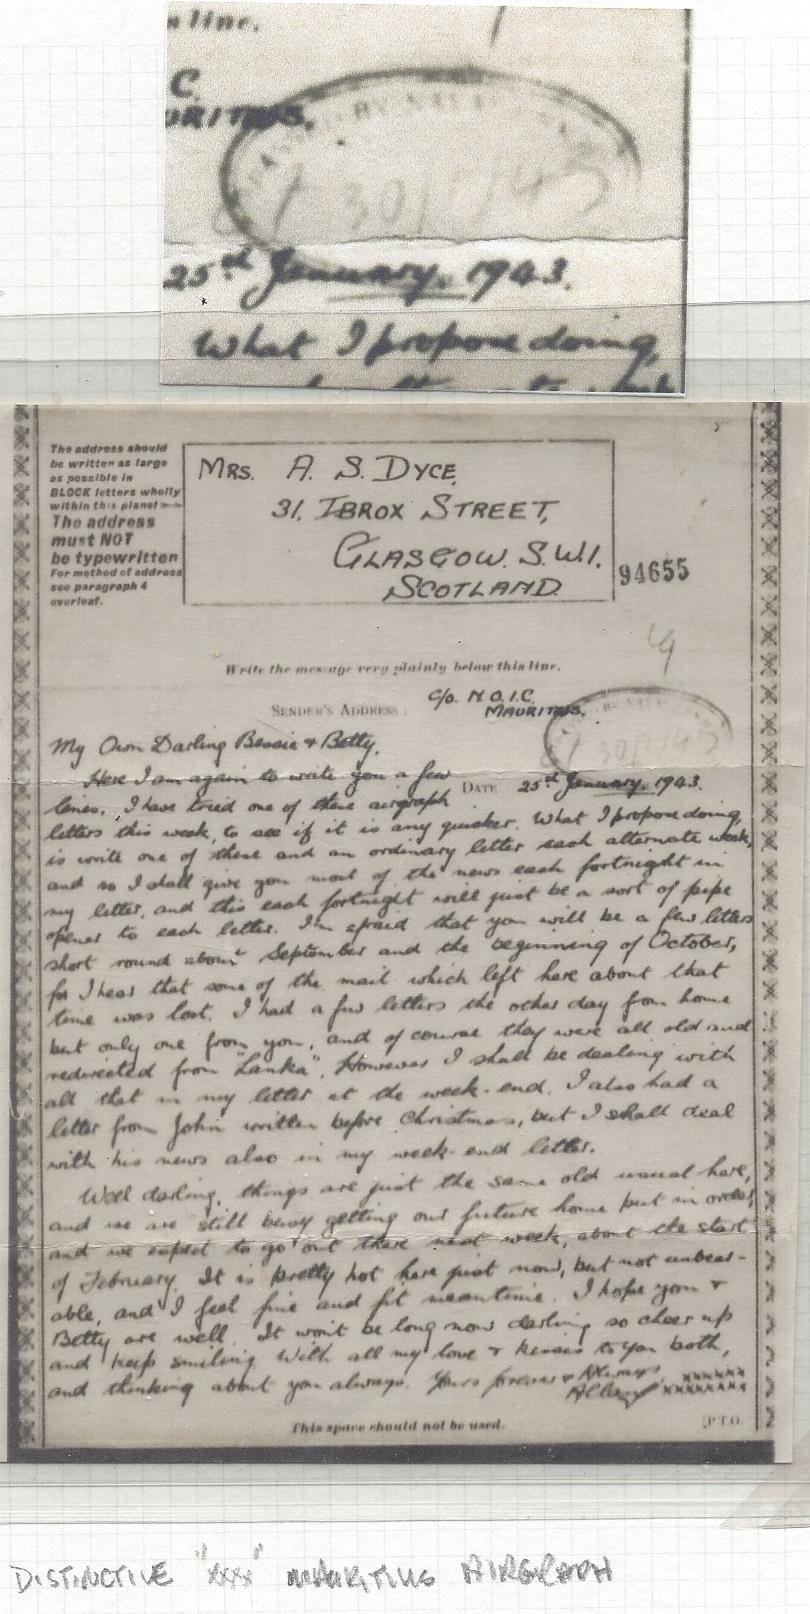 n line.
C.
URITIUS.
25th January. 1943.
What I propose doing,
The address should
be written as large
as possible in
BLOCK letters wholly
within this panel
The address
must NOT
be typewritten
For method of address
see paragraph 4
overleaf.
MRS. A. S. DYCE,
31, IBROX STREET,
GLASGOW. S.W.1.
SCOTLAND.
94655
Write the message very plainly below this line.
SENDER'S ADDRESS:
c/o. N.O.I.C.
MAURITIUS.
30/1/43
My Own Darling Bessie & Betty,
DATE 25th January. 1943.
Here I am again to write you a few
lines. I have tried one of these airgraph
letters this week, to see if it is any quicker. What I propose doing,
is write one of these and an ordinary letter each alternate week,
and so I shall give you most of the news each fortnight in
my letter, and this each fortnight will just be a sort of pipe
opener to each letter. I'm afraid that you will be a few letters
short round about September and the beginning of October,
for I hear that some of the mail which left here about that
time was lost. I had a few letters the other day from home
but only one from you, and of course they were all old and
redirected from "Lanka". However I shall be dealing with
all that in my letter at the week-end. I also had a
letter from John written before Christmas, but I shall deal
with his news also in my week-end letter.
Well darling, things are just the same old usual here,
and we are still busy getting our future home put in order,
and we expect to go out there next week, about the start
of February. It is pretty hot here just now, but not unbear-
able, and I feel fine and fit meantime. I hope you &
Betty are well. It won't be long now darling so cheer up
and keep smiling. With all my love & kisses to you both,
and thinking about you always. Yours forever & Always
xxxxxxx
xxxxxxxx
This space should not be used.
[P.T.O.
DISTINCTIVE "XXX" MAURITIUS AIRGRAPH